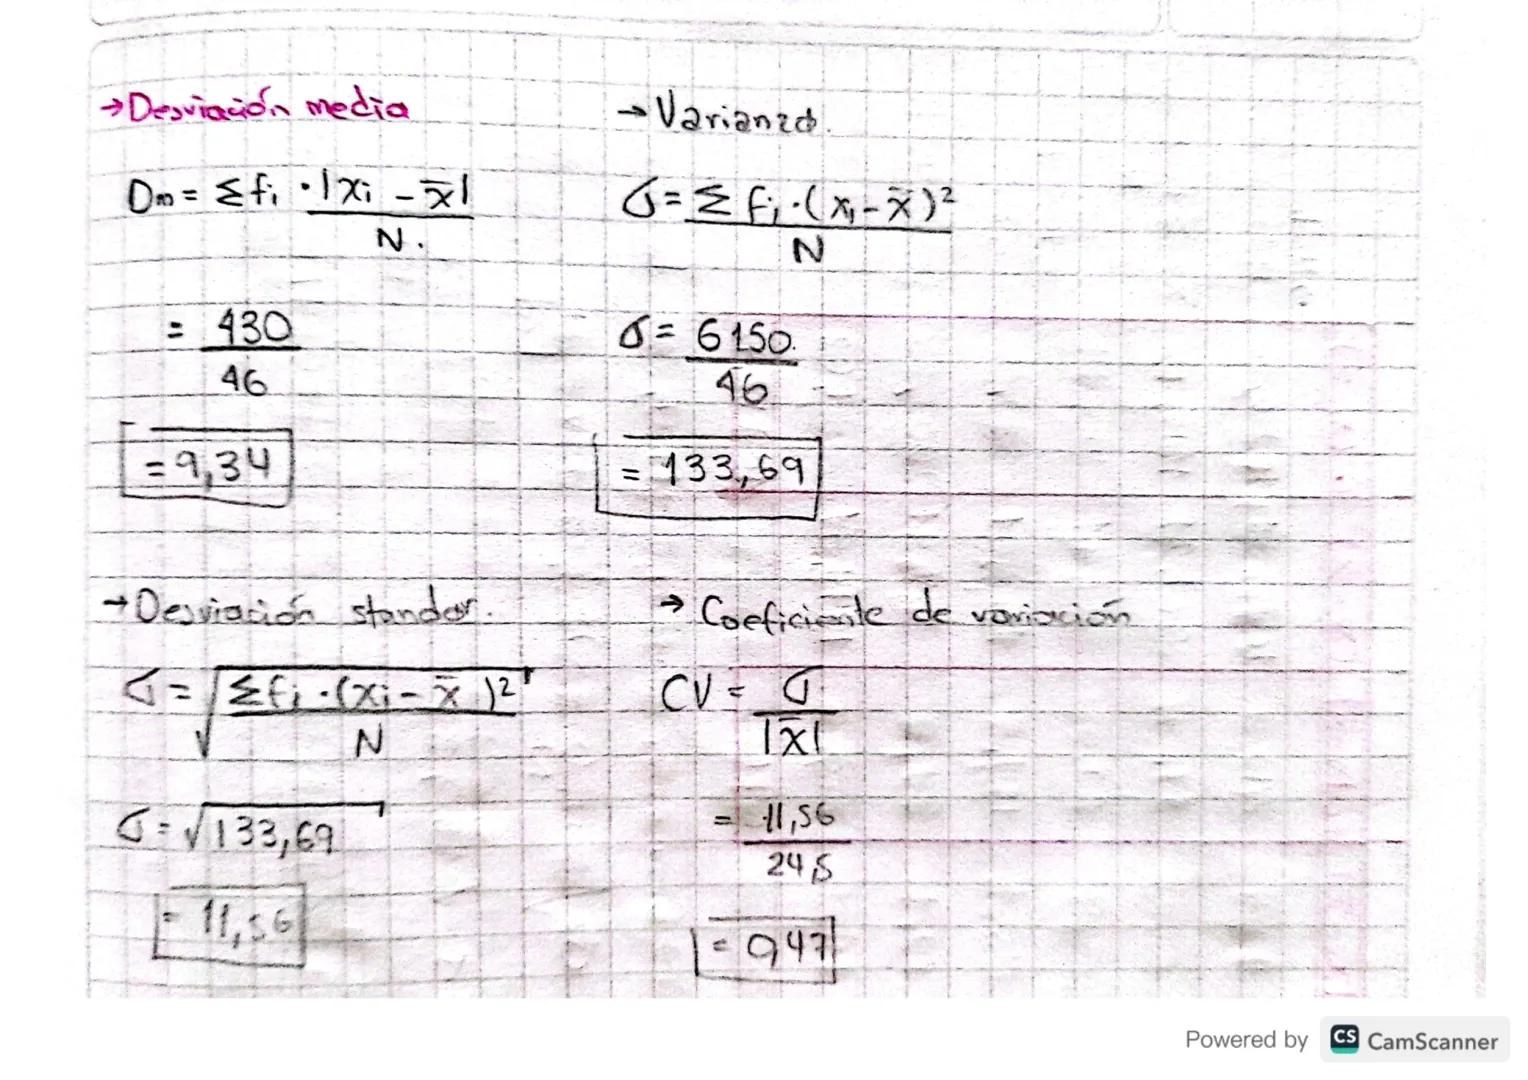 → Desviación media
Dm = Σ fi · |xi - x̄|
N.
= 430
46
= 9,34
→ Varianza.
σ = Σ fi · (xi - x̄)²
N
σ = 6150.
46
= 133,69
→ Desviación standar.
σ = √Σ fi · (xi - x̄)²
N
σ = √133,69
= 11,56
→ Coeficiente de variación
CV = σ
|x̄|
= 11,56
24,5
= 0,47
Powered by CS CamScanner